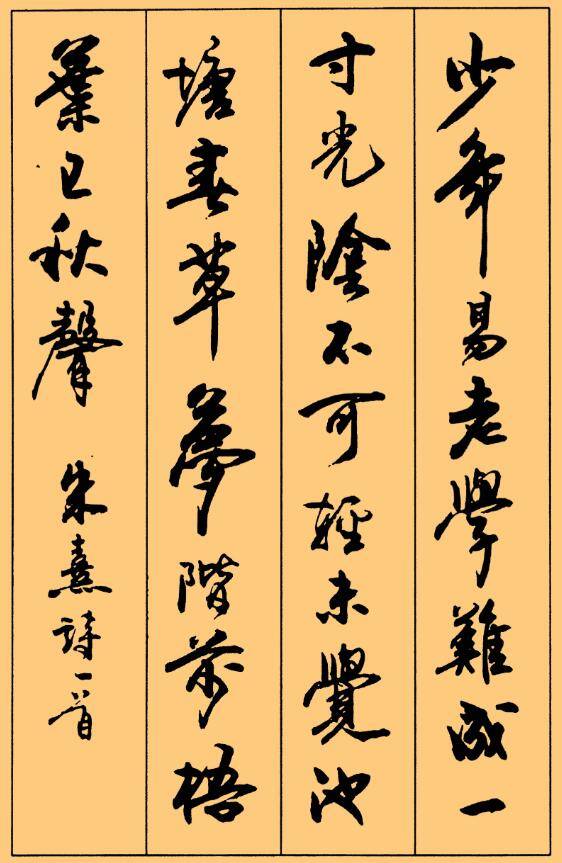 少年易老學難成一
寸光陰不可輕未覺池
塘春草夢階前梧
葉已秋聲 朱熹詩一首